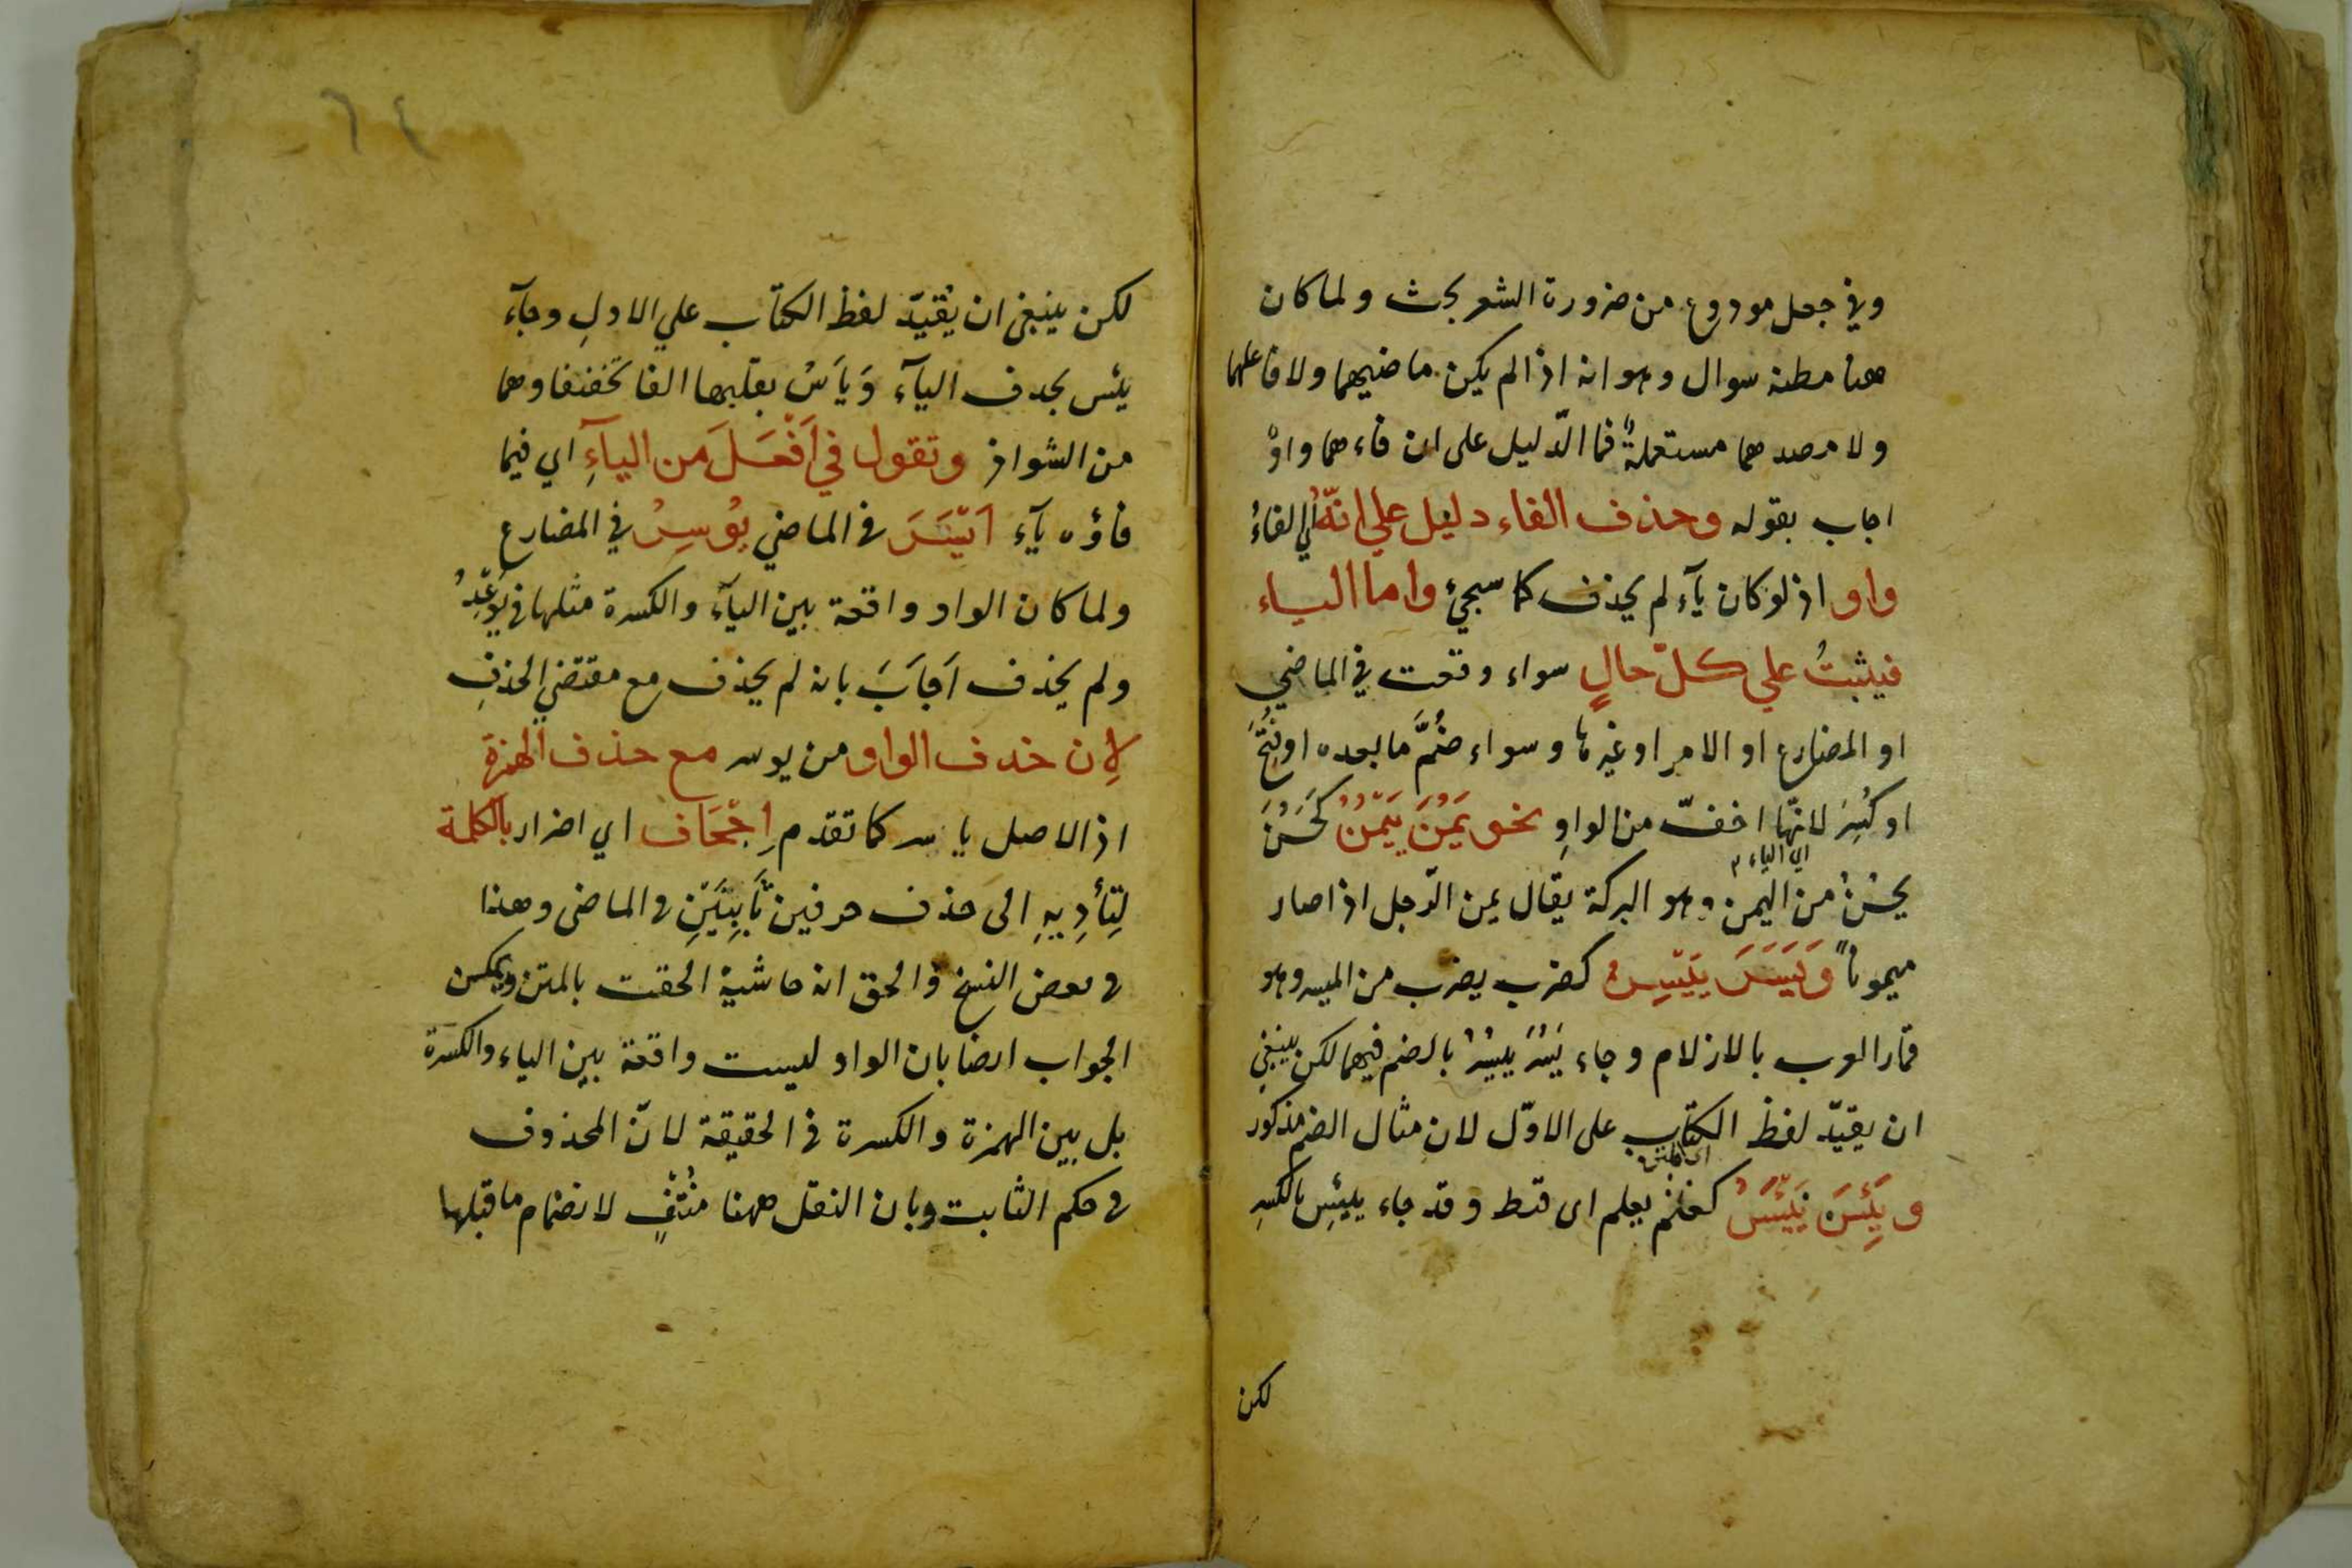 وفي جعل مودوع من ضرورة الشعر بحث ولما كان
هنا مطنة سوال وهو انه اذا لم يكن ماضيهما ولا فاعلهما
ولا مصدرهما مستعملةً فما الدّليل على ان فاءهما واوٌ
اجاب بقوله وحذف الفاء دليل علي انّهُ اي الفاءُ
واو اذ لو كان يآء لم يحذف كما سيجئ واما الياء
فيثبتُ علي كلّ حالٍ سواء وقعت في الماضي
او المضارع او الامر او غيرها وسواء ضُمَّ ما بعده او فُتِحَ
او كُسِرَ لانّها اخفّ من الواوِ نحو يَمُنَ يَيْمُنُ كَحَسُنَ
اي الياء
يحسُنُ من اليمن وهو البركة يقال يمن الرّجل اذا صار
ميمونًا وَيَسَرَ يَيْسِرُ كضرب يضرب من الميسر وهو
قمار العرب بالازلام وجاء يَسُرَ ييسُرُ بالضم فيهما لكن ينبغي
ان يقيّد لفظ الكتاب على الاوّل لان مثال الضم مذكور
ويَئِسَ يَيْئَسُ كعلم يعلم اى قنط وقد جاء ييئِس بالكسرِ
لكن
٦٤
لكن ينبغي ان يُقيّد لفظ الكتاب علي الاولِ وجآء
يئس بحذف اليآء وَيَاَسُ بقلبها الفا تخفيفا وهما
من الشواذ وتقول في اَفْعَلَ من الياءِ اي فيما
فاؤه يآء اَيْسَرَ في الماضي يُوسِرُ في المضارع
ولما كان الواو واقعة بين اليآء والكسرة مثلها في يَوْعِدُ
ولم يحذف اَجَابَ بانه لم يحذف مع مقتضي الحذفِ
لِان حذف الواو من يوسر مع حذف الهمزة
اذ الاصل يا سر كما تقدم اِجْحَاف اي اضرار بالكلمة
لِتأدِيهِ الى حذف حرفين ثَابِتَيْنِ في الماضى وهذا
في بعض النسخ والحق انه حاشيةٌ الحقت بالمتن ويمكن
الجواب ايضا بان الواو ليست واقعة بين الياء والكسرة
بل بين الهمزة والكسرة في الحقيقة لانّ المحذوف
في حكم الثابت وبان الثقل ههنا مُنْتَفٍ لانضمام ما قبلها